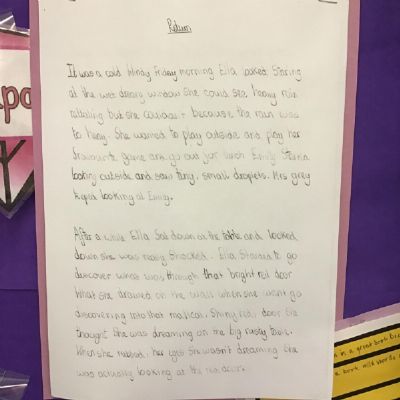 Return
It was a cold windy Friday morning Ella looked Staring
at the wet dreary window She could see, heavy rain
falling but she couldn't because the rain was
to heavy. She wanted to play outside and play her
favourite game and go out for lunch Emily
looking outside and saw tiny, small droplets. Mrs grey
keped looking at Emily.
After a while Ella Sat down on the table and looked
down she was really shocked. Ella Started to go
discover what was through that bright red door
What she drawed on the wall when she went go
discovering into that magical, Shiny red, door She
thought She was dreaming on the big rusty
When she rubbed, her eyes She wasn't dreaming She
was actually looking at the red door.
in a great book